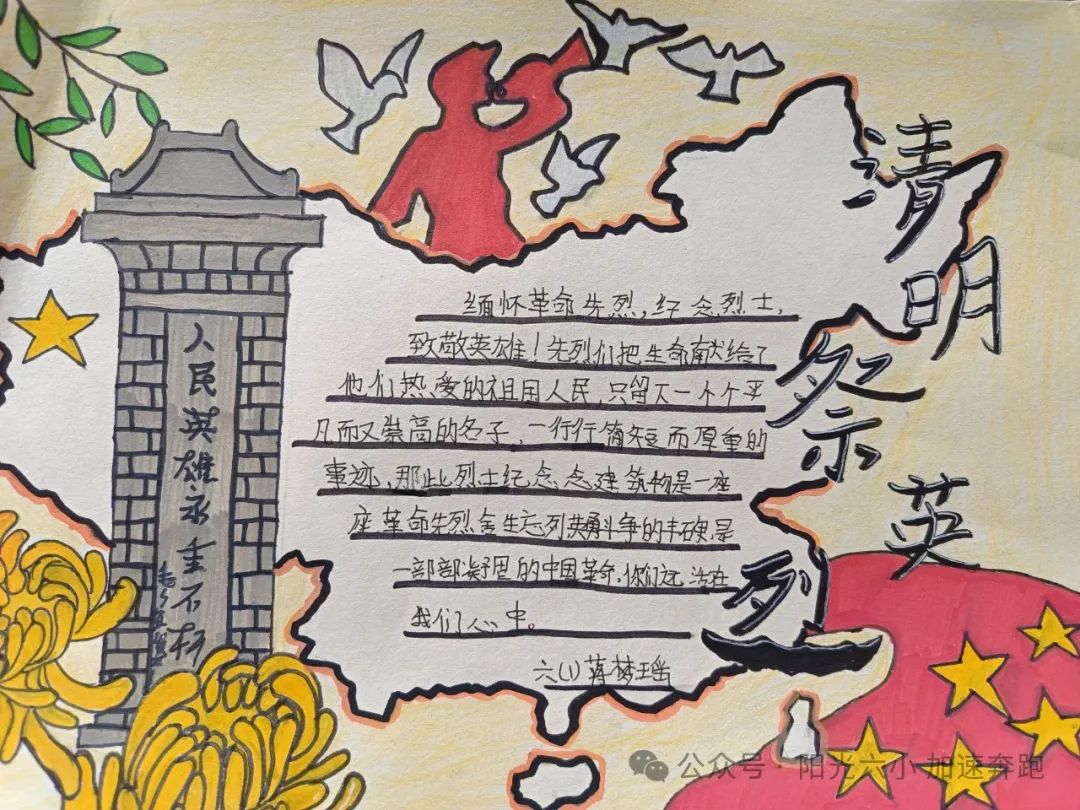 清明祭英烈
人民英雄永垂不朽
缅怀革命先烈,纪念烈士,
致敬英雄!先烈们把生命献给了
他们热爱的祖国人民,只留下一个个平
凡而又崇高的名子,一行行简短而厚重的
事迹,那些烈士纪念念建筑物是一座
座革命先烈舍生忘死英勇斗争的丰碑,是
一部部凝固的中国革命,你们远活在
我们心中。
六(1)蒋梦瑶
公众号·阳光六小加速奔跑